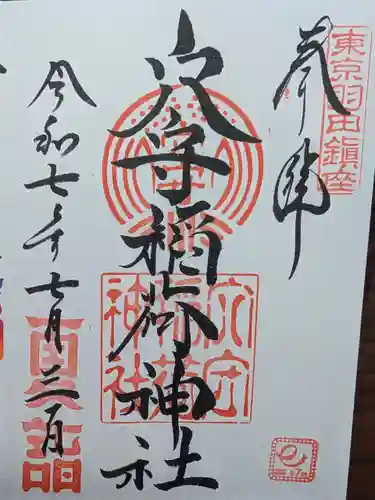 奉拝
東京羽田鎮座
穴守稲荷神社
穴守稲荷神社
令和七年七月三一日